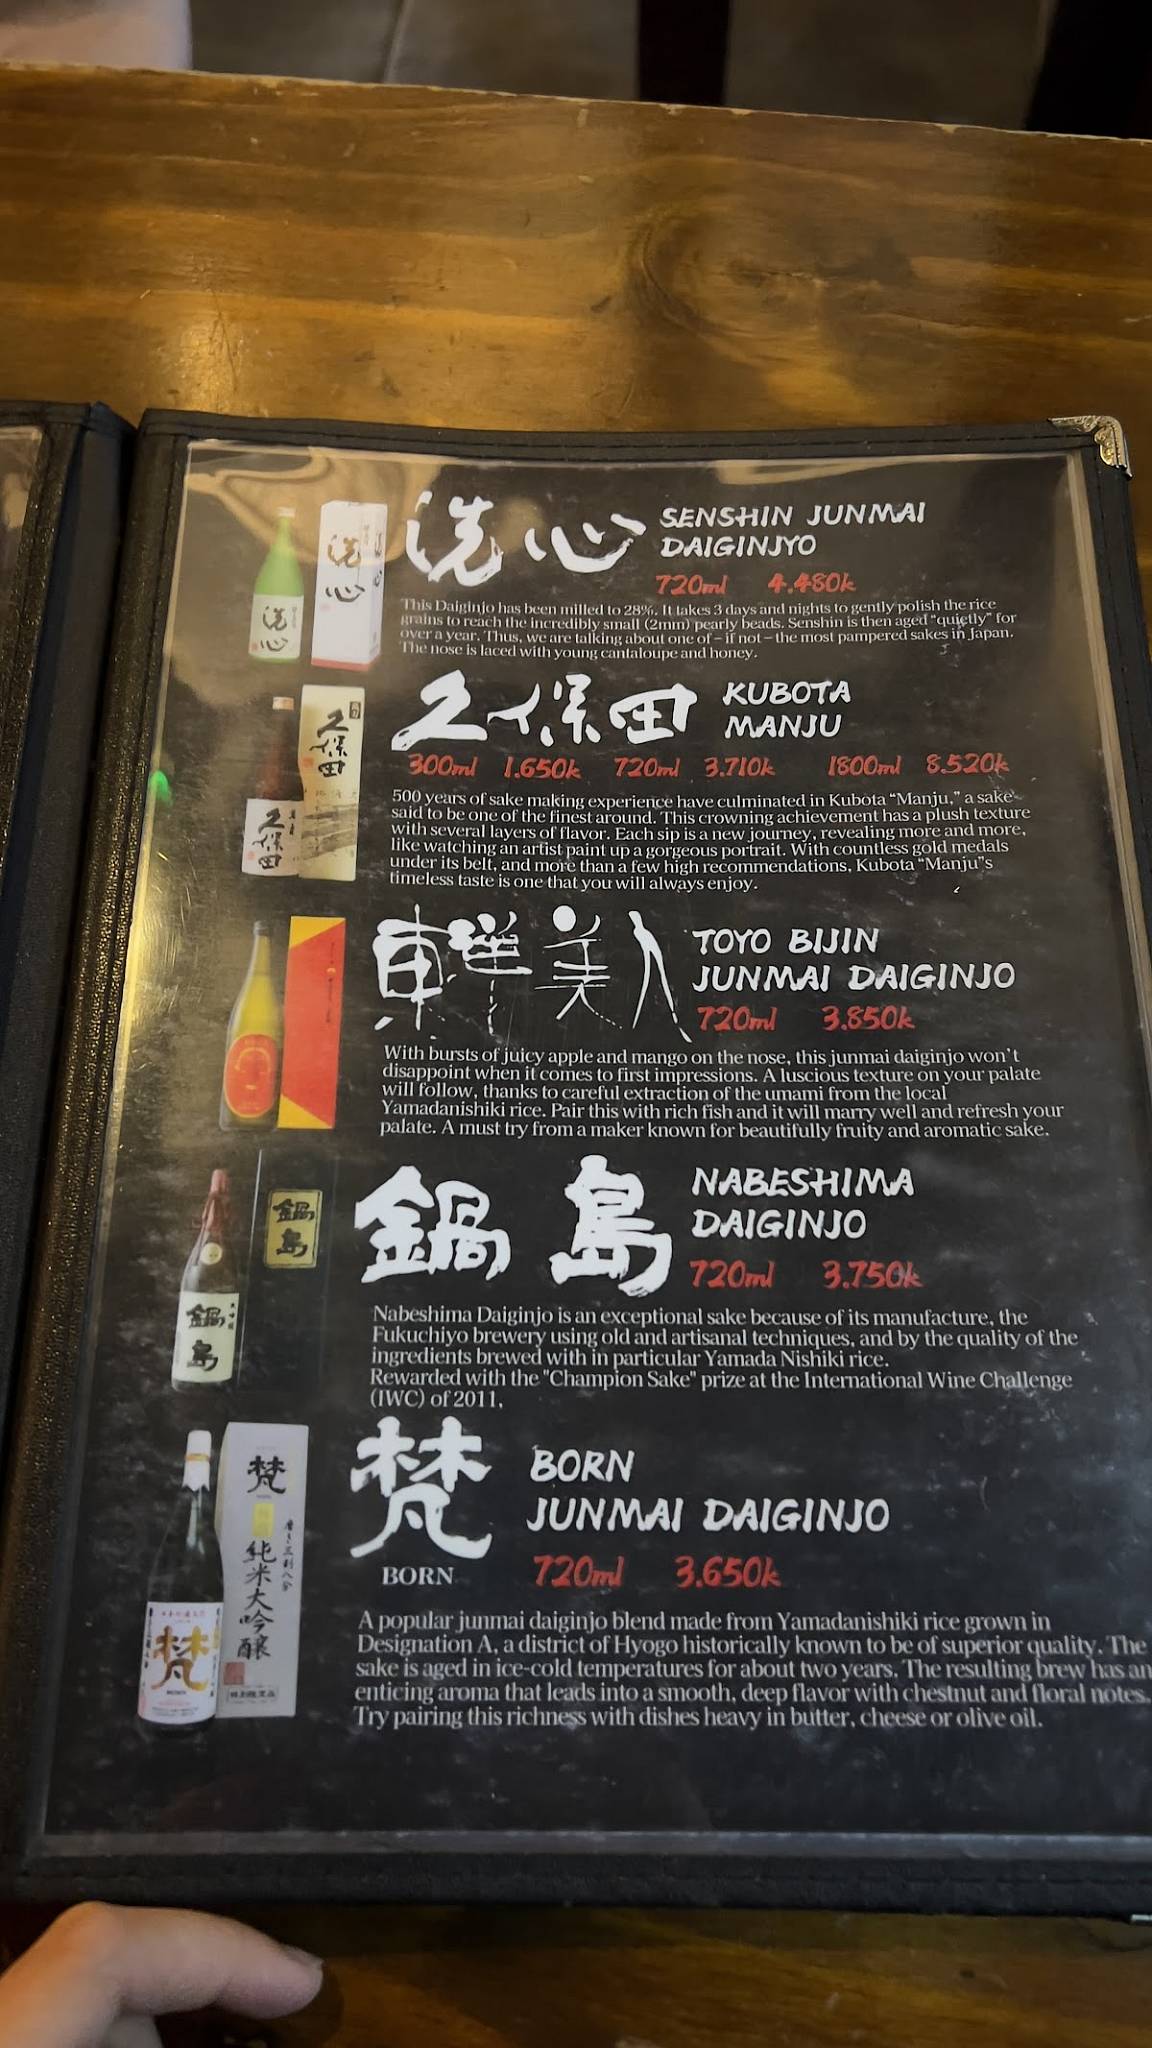 洗心
SENSHIN JUNMAI
DAIGINJYO
720ml 4.480k
This Daiginjo has been milled to 28%. It takes 3 days and nights to gently polish the rice
grains to reach the incredibly small (2mm) pearly beads. Senshin is then aged "quietly" for
over a year. Thus, we are talking about one of – if not – the most pampered sakes in Japan.
The nose is laced with young cantaloupe and honey.
久保田
KUBOTA
MANJU
300ml 1.650k 720ml 3.710k 1800ml 8.520k
500 years of sake making experience have culminated in Kubota “Manju,” a sake
said to be one of the finest around. This crowning achievement has a plush texture
with several layers of flavor. Each sip is a new journey, revealing more and more,
like watching an artist paint up a gorgeous portrait. With countless gold medals
under its belt, and more than a few high recommendations, Kubota “Manju”s
timeless taste is one that you will always enjoy.
東洋美人
TOYO BIJIN
JUNMAI DAIGINJO
720ml 3.850k
With bursts of juicy apple and mango on the nose, this junmai daiginjo won't
disappoint when it comes to first impressions. A luscious texture on your palate
will follow, thanks to careful extraction of the umami from the local
Yamadanishiki rice. Pair this with rich fish and it will marry well and refresh your
palate. A must try from a maker known for beautifully fruity and aromatic sake.
鍋島
NABESHIMA
DAIGINJO
720ml 3.750k
Nabeshima Daiginjo is an exceptional sake because of its manufacture, the
Fukuchiyo brewery using old and artisanal techniques, and by the quality of the
ingredients brewed with in particular Yamada Nishiki rice.
Rewarded with the "Champion Sake" prize at the International Wine Challenge
(IWC) of 2011,
梵
BORN
BORN
JUNMAI DAIGINJO
720ml 3.650k
A popular junmai daiginjo blend made from Yamadanishiki rice grown in
Designation A, a district of Hyogo historically known to be of superior quality. The
sake is aged in ice-cold temperatures for about two years. The resulting brew has an
enticing aroma that leads into a smooth, deep flavor with chestnut and floral notes.
Try pairing this richness with dishes heavy in butter, cheese or olive oil.
洗心
洗心
久保田
久保田
鍋島
鍋島
梵
梵
純米大吟醸
磨き三割八分